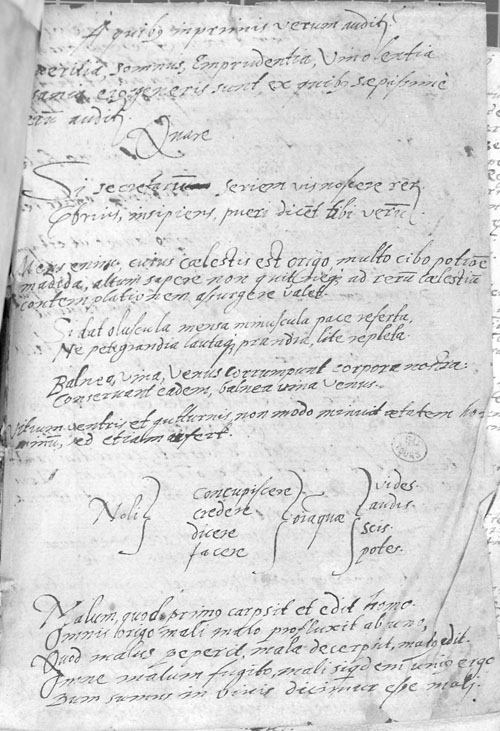 A quibus inprimis verum auditur
puerilia, somnus, Emprudentia, Vinolentia
ejus generis sunt ex quibus sæpissime
auditur
Quare
Si secretarum seriem vis noscere rerum
Ebrius, insipiens, pueri dicet tibi verum
Mens enim cuius cælestis est origo, multo cibo potione
madida, altum sapere non quit neque ad rerum cælestiu
contemplationem assurgere valet.
Si dat oluscula mensa minuscula pace referta,
Ne pete grandia lautaque prandia, lite repleta
Balnea, vina, Venus corrumpunt corpora nostra:
Conservant eadem, balnea vina Venus.
Vitium ventris et gutturis non modo minuit ætatem ho-
minum, sed etiam aufert.
Noli concupiscere oiaquæ vides
credere audis
dicere scis
facere potes.
Malum, quod primo carpsit et edit homo.
Omnis origo mali malo profluxit ab uno,
Quod malus peperit, mala decerpsit, malo edit.
malum fugito, mali siquidem unio ergo
Dum sumus in dicimur esse mali.
BIB
TOURS